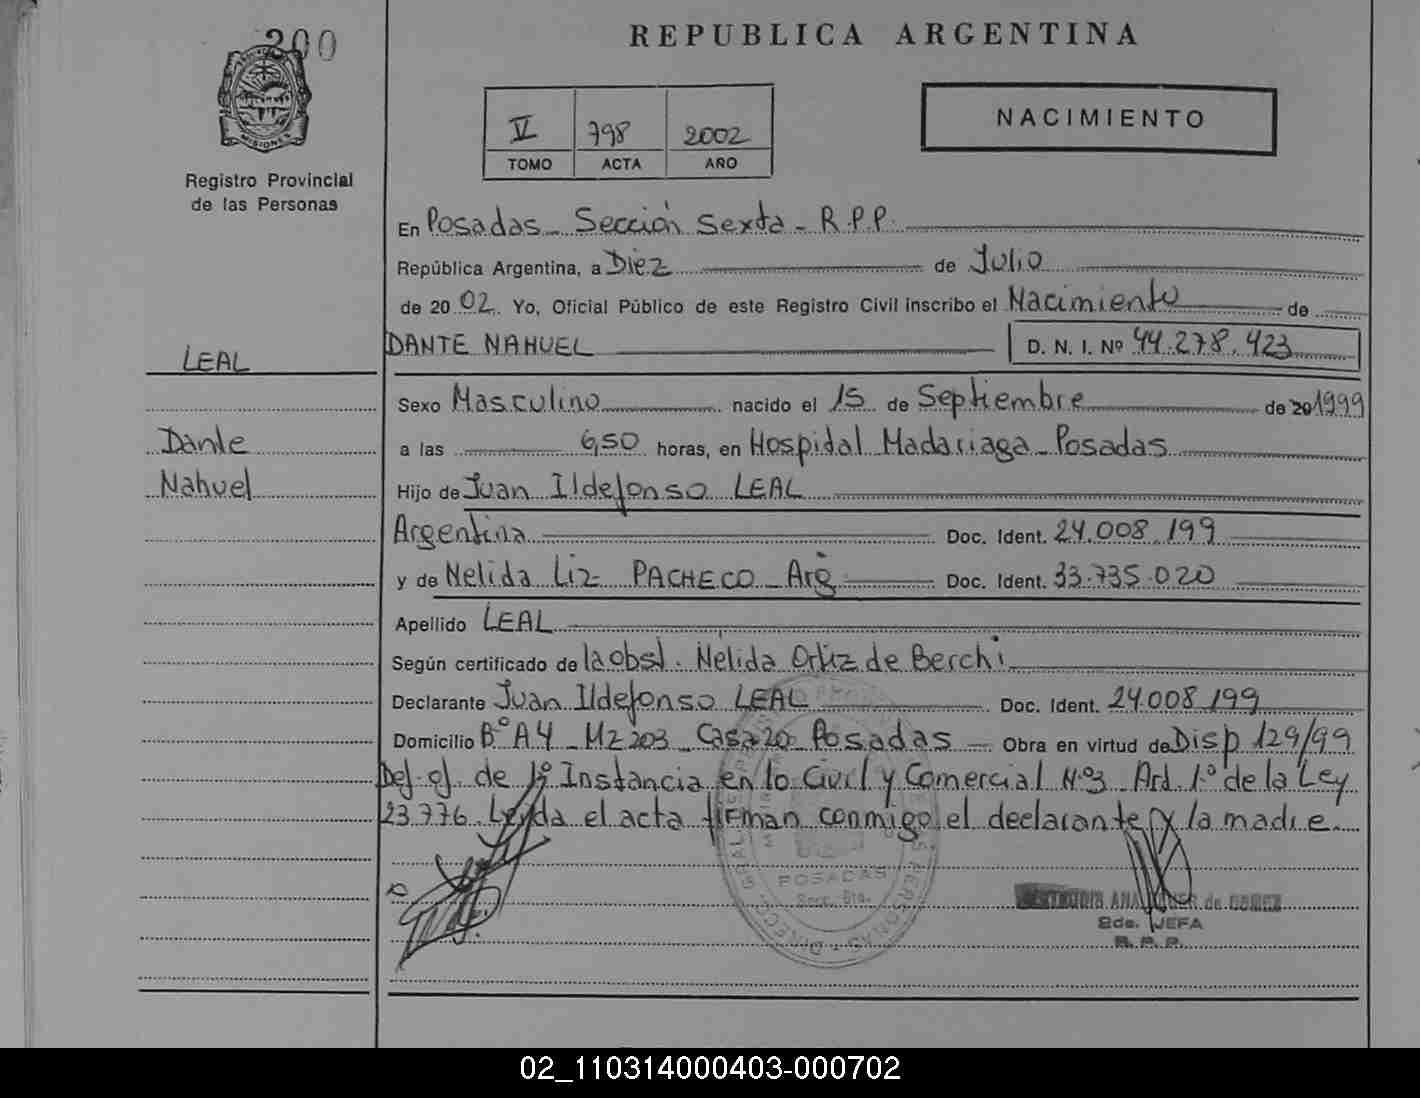 200
REPUBLICA ARGENTINA
NACIMIENTO
V 798 2002
TOMO ACTA AÑO
MISIONES
Registro Provincial
de las Personas
En Posadas - Sección Sexta - R.P.P.
República Argentina, a Diez de Julio
de 20 02. Yo, Oficial Público de este Registro Civil inscribo el Nacimiento de
DANTE NAHUEL D. N. I. Nº 44.278.423
LEAL
Dante
Nahuel
Sexo Masculino nacido el 15 de Septiembre de 20 1999
a las 6,50 horas, en Hospital Madariaga - Posadas
Hijo de Juan Ildefonso LEAL
Argentina Doc. Ident. 24.008.199
y de Nelida Liz PACHECO - Arg Doc. Ident. 33.735.020
Apellido LEAL
Según certificado de la obst. Nélida Ortiz de Berchi
Declarante Juan Ildefonso LEAL Doc. Ident. 24.008.199
Domicilio Bº A4 - Mz 203 - Casa 20 - Posadas - Obra en virtud de Disp 129/99
Def. of. de 1º Instancia en lo Civil y Comercial N.º3 - Art. 1.º de la Ley
23.776. Leyda el acta firman conmigo el declarante y la madre.
POSADAS
Secc. 6ta.
ANA de GOMEZ
2da. JEFA
R. P. P.
02_110314000403-000702